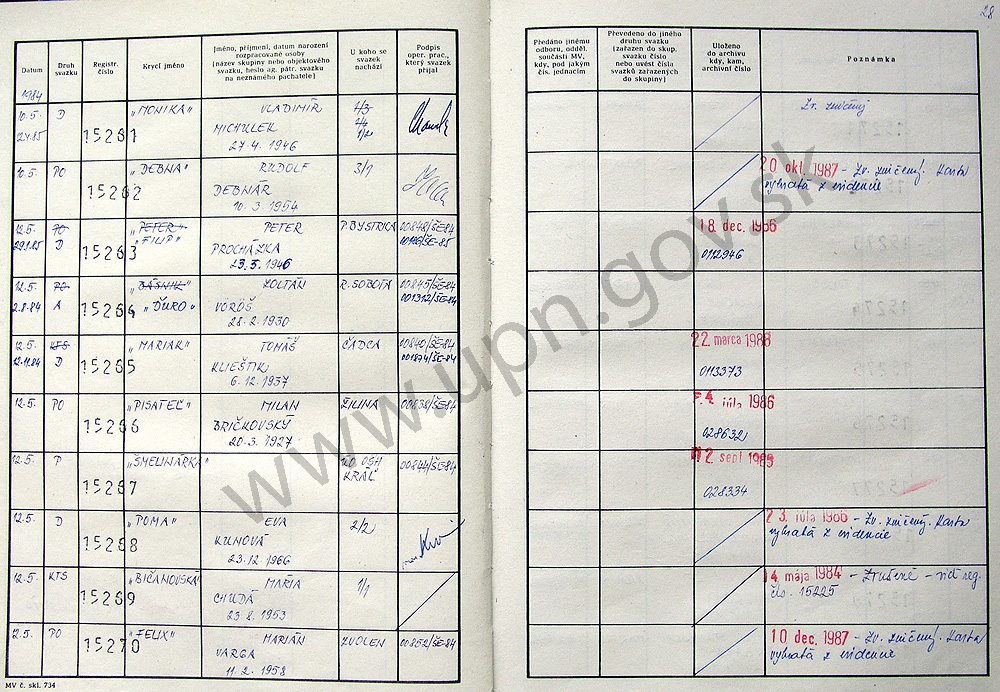 28
Datum
Druh svazku
Registr. číslo
Krycí jméno
Jméno, příjmení, datum narození
rozpracované osoby
(název skupiny nebo objektového
svazku, heslo ag. pátr. svazku
na neznámého pachatele)
U koho se
svazek
nachází
Podpis
oper. prac.,
který svazek
přijal
Předáno jinému
odboru, odděl.
součásti MV,
kdy, pod jakým
čís. jednacím
Převedeno do jiného
druhu svazku
(zařazen do skup.
svazku číslo
nebo uvést čísla
svazků zařazených
do skupiny)
Uloženo
do archivu
kdy, kam,
archivní číslo
Poznámka
1984
10.5. D 15261 "MONIKA" VLADIMÍR
MICHULEK
27.4.1946
Zv. zničený
10.5. PO 15262 "DEBNA" RUDOLF 3/1
DEBNÁR
10.3.1954
20 okt. 1987 - Zv. zničený. Karta
vybratá z evidencie
12.5. PO 15263 "PETER" PETER P.BYSTRICA 00848/ŠE-84
29.1.85 D "FILIP" PROCHÁZKA
23.5.1946
18 dec. 1986
0112946
12.5. PO 15264 "BÁSNIK" ZOLTÁN R. SOBOTA 00845/ŠE-84
2.8.84 A "ĎURO" VÖRÖŠ 001312/ŠE-84
28.2.1930
12.5. KTS 15265 "MARIAK" TOMÁŠ ČADCA 00840/ŠE-84
12.11.84 D KLIEŠTIK 001874/ŠE-84
6.12.1937
22. marca 1988
0113373
12.5. PO 15266 "PISATEĽ" MILAN ŽILINA 00838/ŠE-84
BRIČKOVSKÝ
20.3.1927
4. júla 1986
028632
12.5. P 15267 "ŠMELINÁRKA" 00844/ŠE-84
KRÁĽ
12 sept 1985
028334
12.5. D 15268 "POMA" EVA 2/2
KUNOVÁ
23.12.1966
23. júla 1986 - Zv. zničený. Karta
vybratá z evidencie
12.5. KTS 15269 "BIČANOVSKÁ" MÁRIA 1/1
CHUDÁ
23.8.1953
14 mája 1984 - Zrušené - viď reg.
čís. 15225
12.5. PO 15270 "FELIX" MARIÁN ZVOLEN 00852/ŠE-84
VARGA
11.2.1958
10 dec. 1987 - Zv. zničený. Karta
vybratá z evidencie
MV č. skl. 734
www.upn.gov.sk